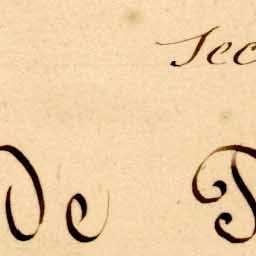 Sec
de P